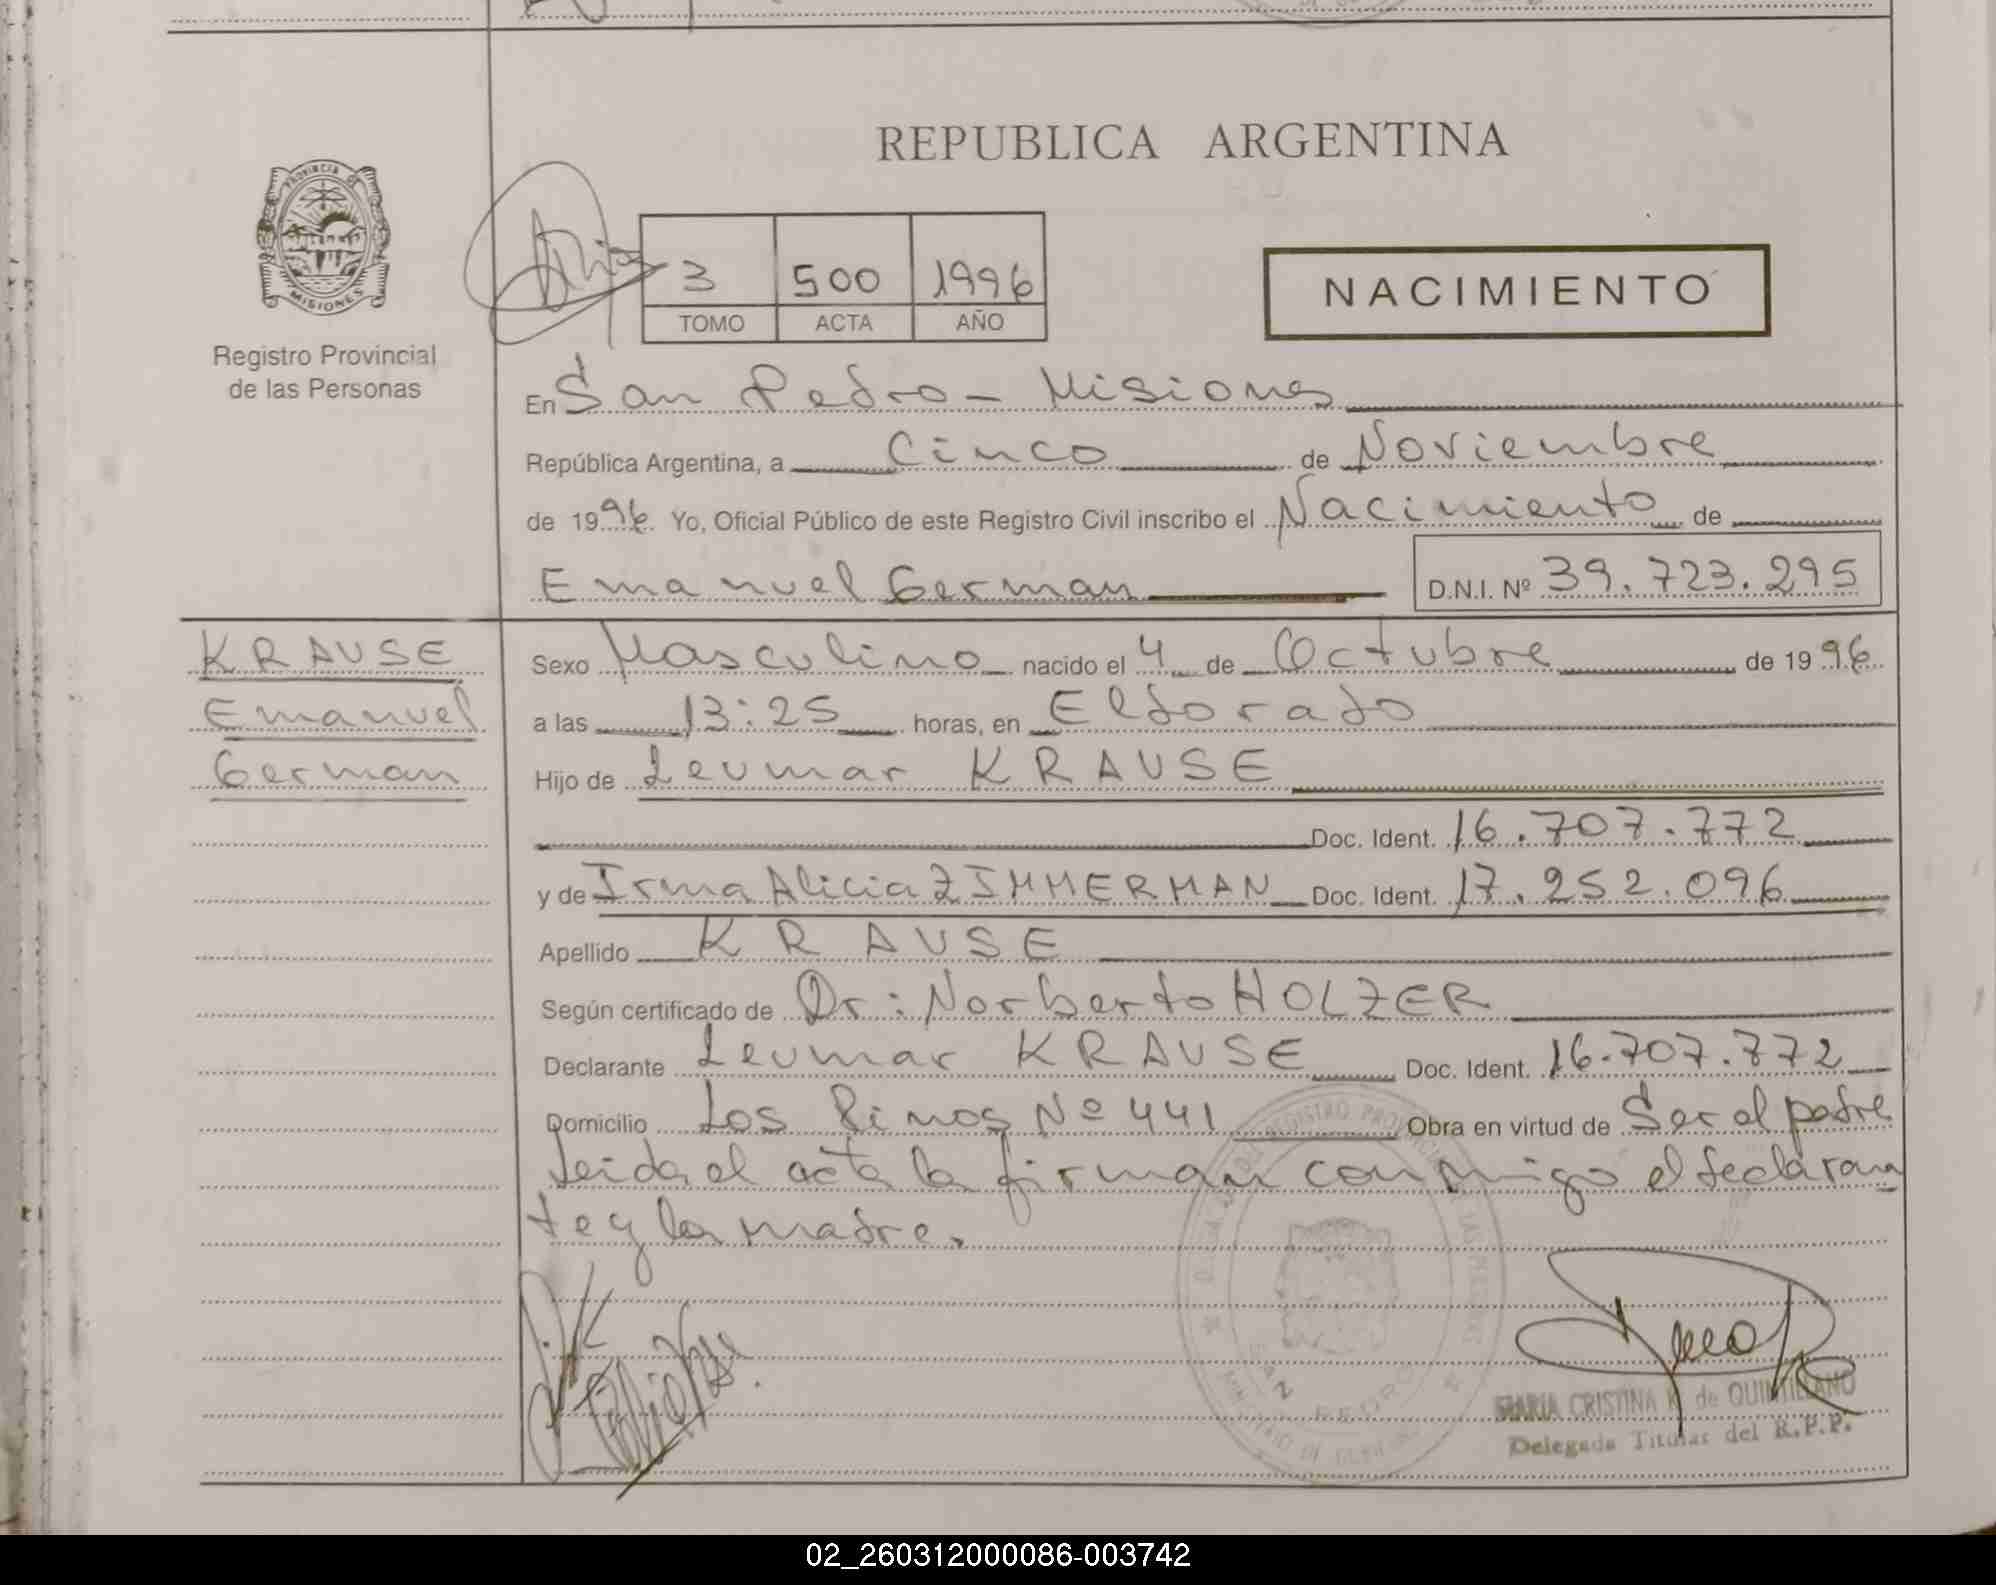 REPUBLICA ARGENTINA
PROVINCIA DE
MISIONES
Registro Provincial
de las Personas
3 500 1996
TOMO ACTA AÑO
NACIMIENTO
En San Pedro - Misiones
República Argentina, a Cinco de Noviembre
de 1996. Yo, Oficial Público de este Registro Civil inscribo el Nacimiento de
Emanuel German D.N.I. Nº 39.723.295
KRAUSE
Emanuel
German
Sexo Masculino nacido el 4 de Octubre de 1996
a las 13:25 horas, en Eldorado
Hijo de Leumar KRAUSE
Doc. Ident. 16.707.772
y de Irma Alicia ZIMMERMAN Doc. Ident. 17.252.096
Apellido KRAUSE
Según certificado de Dr: Norberto HOLZER
Declarante Leumar KRAUSE Doc. Ident. 16.707.772
Domicilio Los Pinos Nº 441 Obra en virtud de Ser el padre
Leida el acta la firman conmigo el declaran
te y la madre.
MARIA CRISTINA K. de QUINTILLANO
Delegada Titular del R.P.P.
02_260312000086-003742